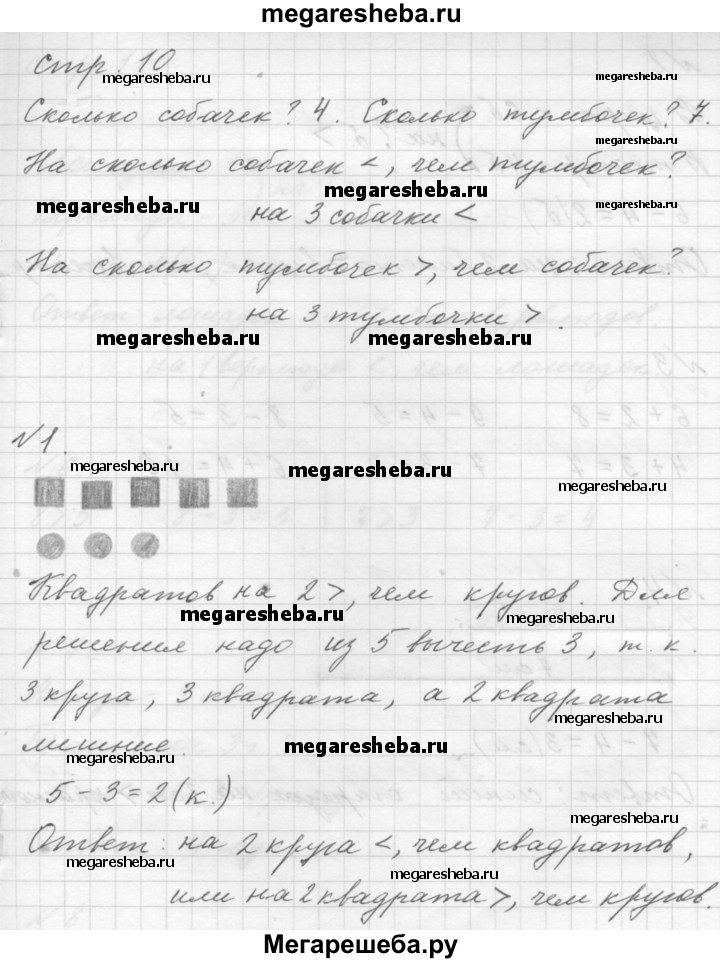 megaresheba.ru
стр. 10
megaresheba.ru
megaresheba.ru
Сколько собачек? 4. Сколько тумбочек? 7.
megaresheba.ru
На сколько собачек <, чем тумбочек?
megaresheba.ru
megaresheba.ru
на 3 собачки <
megaresheba.ru
На сколько тумбочек >, чем собачек?
на 3 тумбочки >.
megaresheba.ru
megaresheba.ru
№1.
megaresheba.ru
megaresheba.ru
megaresheba.ru
Квадратов на 2 >, чем кругов. Для
megaresheba.ru
megaresheba.ru
решения надо из 5 вычесть 3, т. к.
3 круга, 3 квадрата, а 2 квадрата
megaresheba.ru
лишние.
megaresheba.ru
megaresheba.ru
5 - 3 = 2 (к.)
megaresheba.ru
Ответ: на 2 круга <, чем квадратов,
megaresheba.ru
megaresheba.ru
или на 2 квадрата >, чем кругов.
megaresheba.ru
Мегарешеба.ру